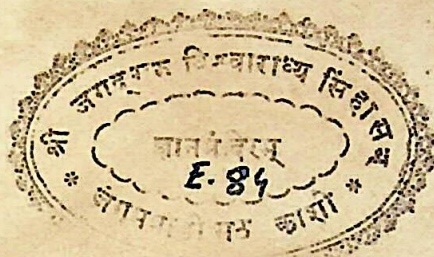 श्री जगद्गुरु विश्वाराध्य सिंहासन
ज्ञानमंदिरम्
E. 84
* जंगमवाडी मठ काशी *